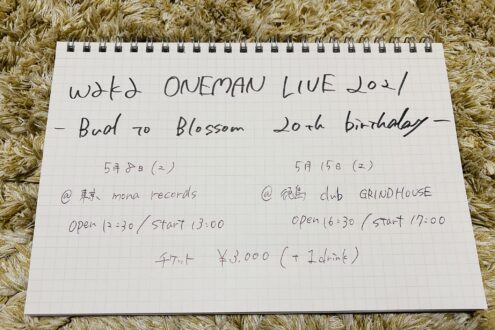 waka ONEMAN LIVE 2021
- Bud to Blossom 20th birthday -
5月8日(土)
@東京 mona records
open 12:30/start 13:00
5月15日(土)
@徳島 club GRINDHOUSE
open 16:30/start 17:00
チケット ¥3,000 (+1drink)